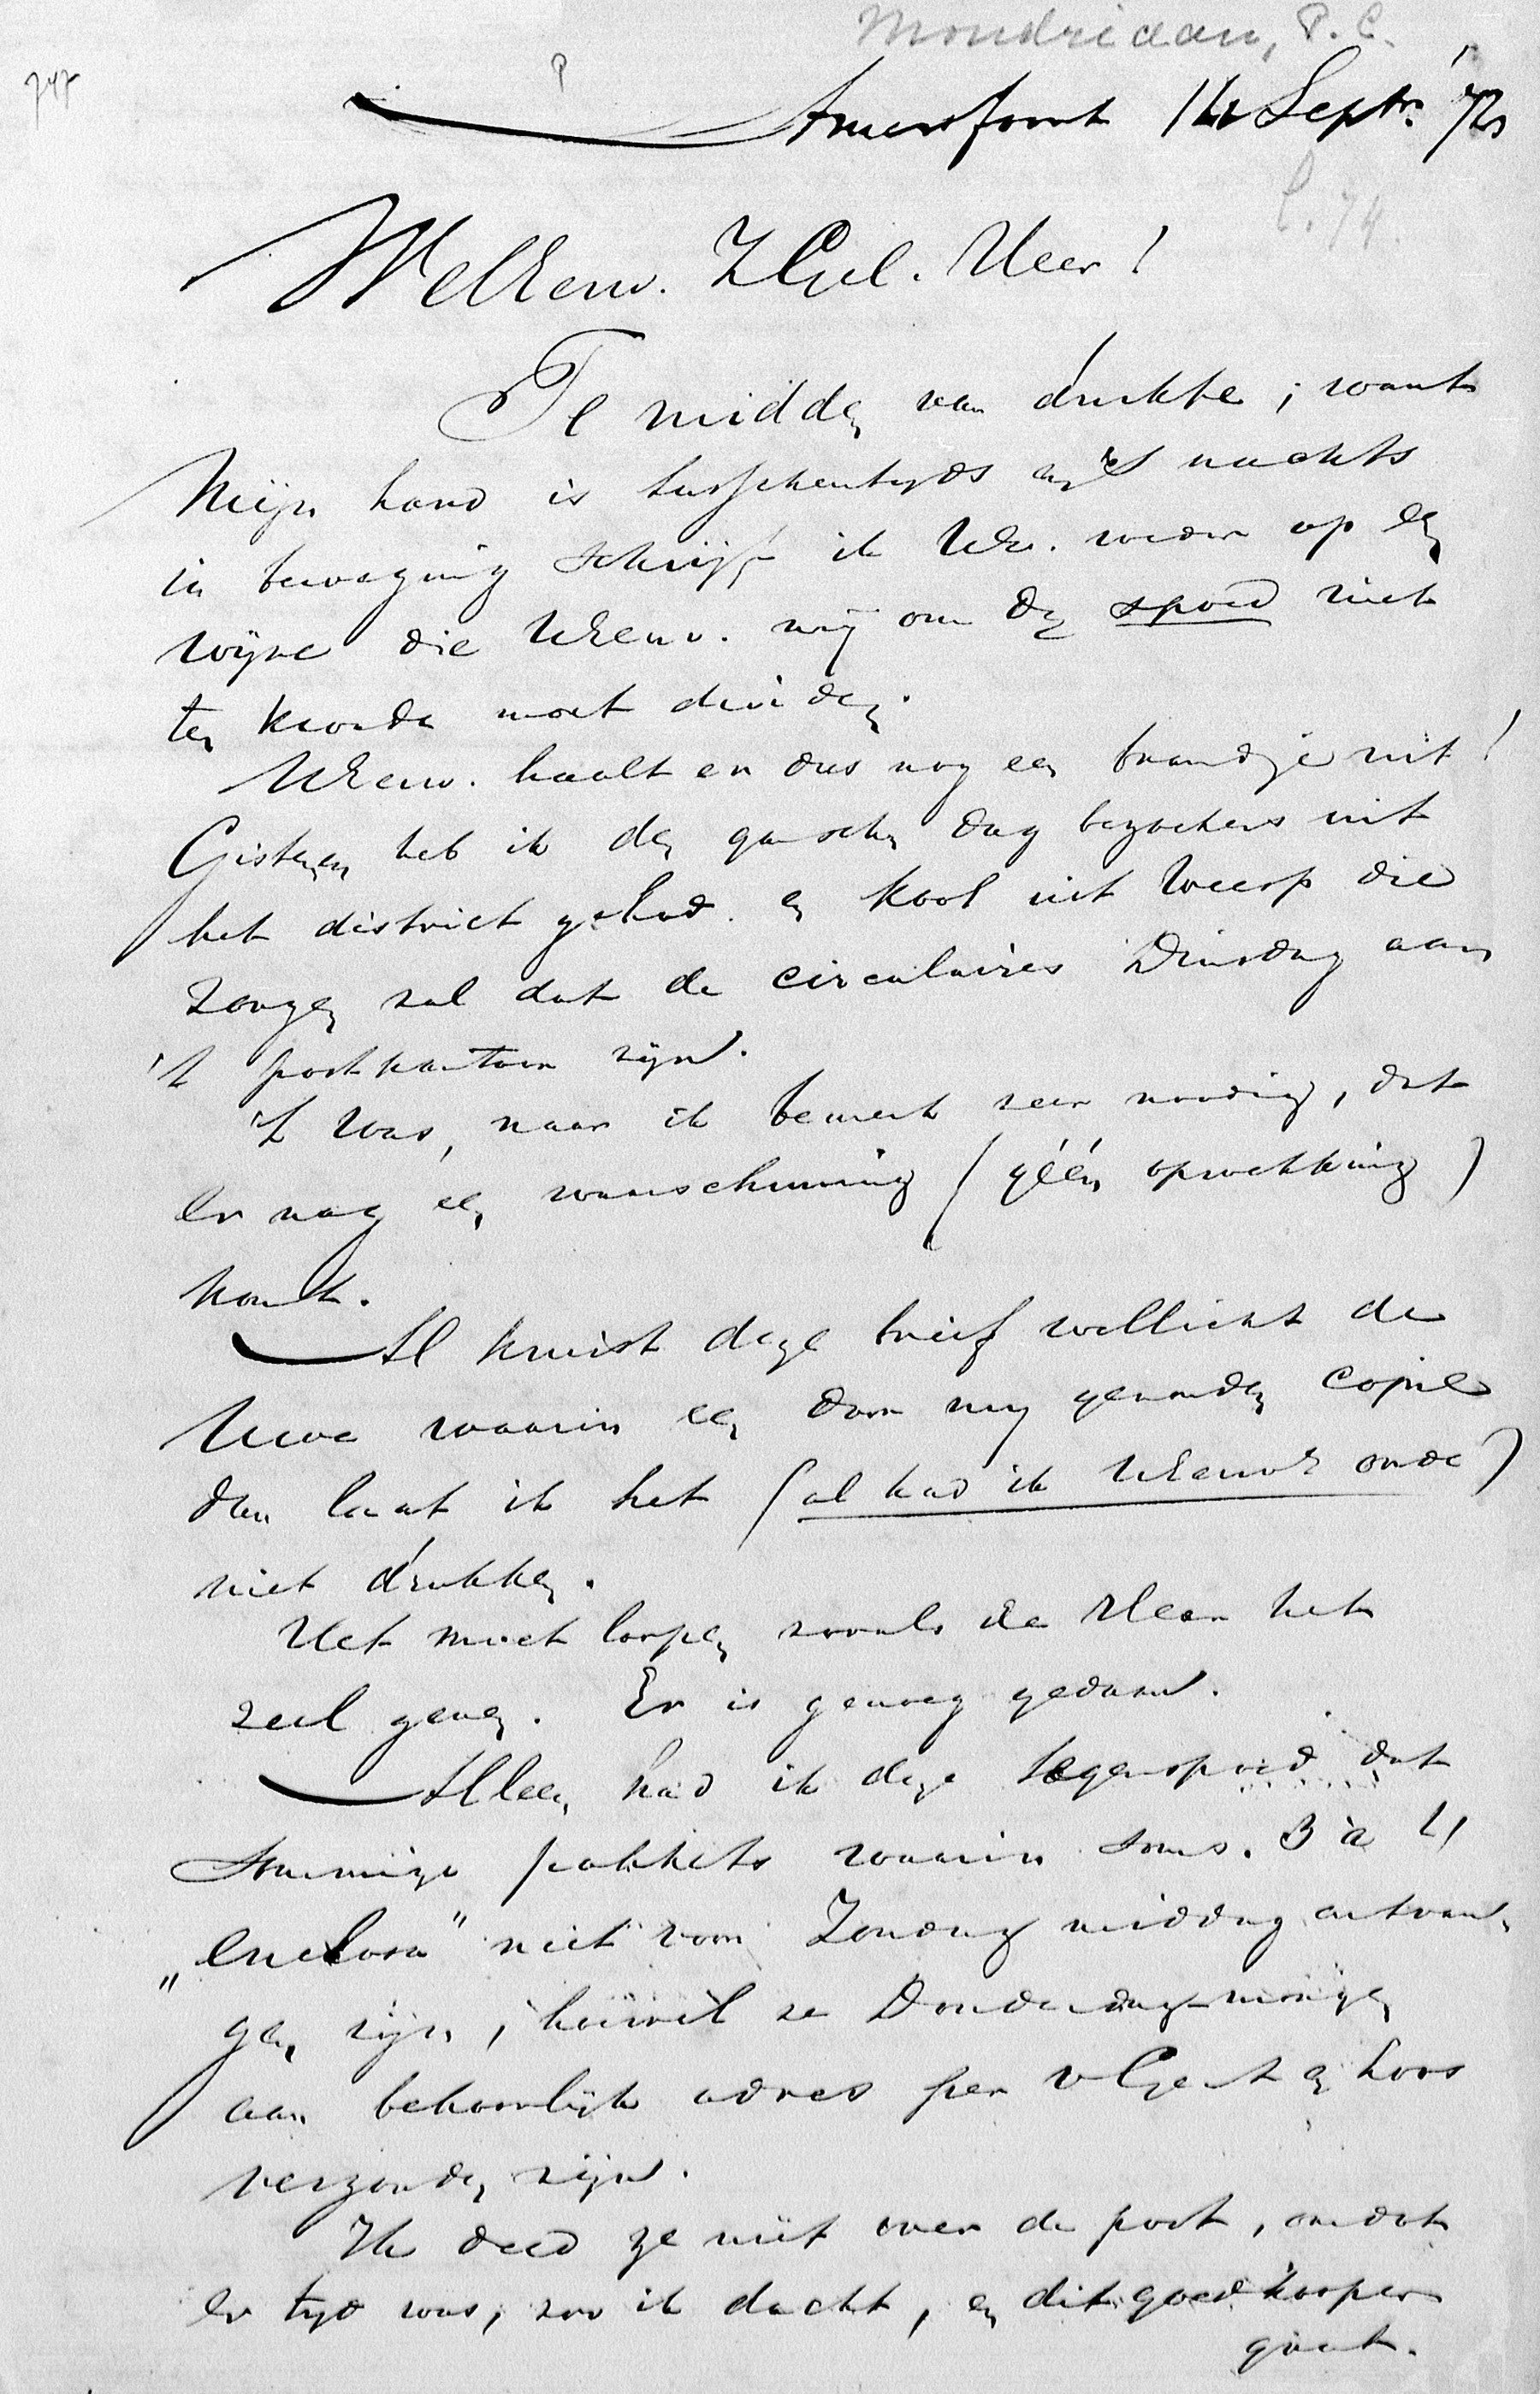 Mondriaan, P. C.
747
Amersfoort 14 Septr. '72
C. 74.
WelEerw. ZGel. Heer!
Te midden van drukte; want
Mijn hand is tusschentyds en 's nachts
in beweging schrijf ik UEw. weder op een
wijze die UEerw. mij om den spoed niet
ten kwade moet duiden.
UEerw. haalt er dus nog een brandje uit!
Gisteren heb ik den ganschen dag bezoekers uit
het district gehad. en Kool uit Weesp die
zorgen zal dat de circulaires Dinsdag aan
't postkantoor zijn.
't Was, naar ik bemerk zeer noodig, dat
er nog een waarschuwing (géén opwekking)
komt.
Al kruist deze brief wellicht de
Uwe waarin een door mij gezonden copie
dan laat ik het (al had ik UEerws orde)
niet drukken.
Het moet loopen zooals de Heer het
zal geven. Er is genoeg gedaan.
Alleen had ik deze tegenspoed dat
sommige pakkets waarin soms. 3 à 4
„enclosa" niet voor Zondag middag ontvan-
gen zijn, hoewel ze Donderdagmorgen
aan behoorlijk adres per v Gent en Loos
verzonden zijn.
Ik deed ze niet over de post, omdat
er tyd was, zoo ik dacht, en dit goedkooper
gaat.